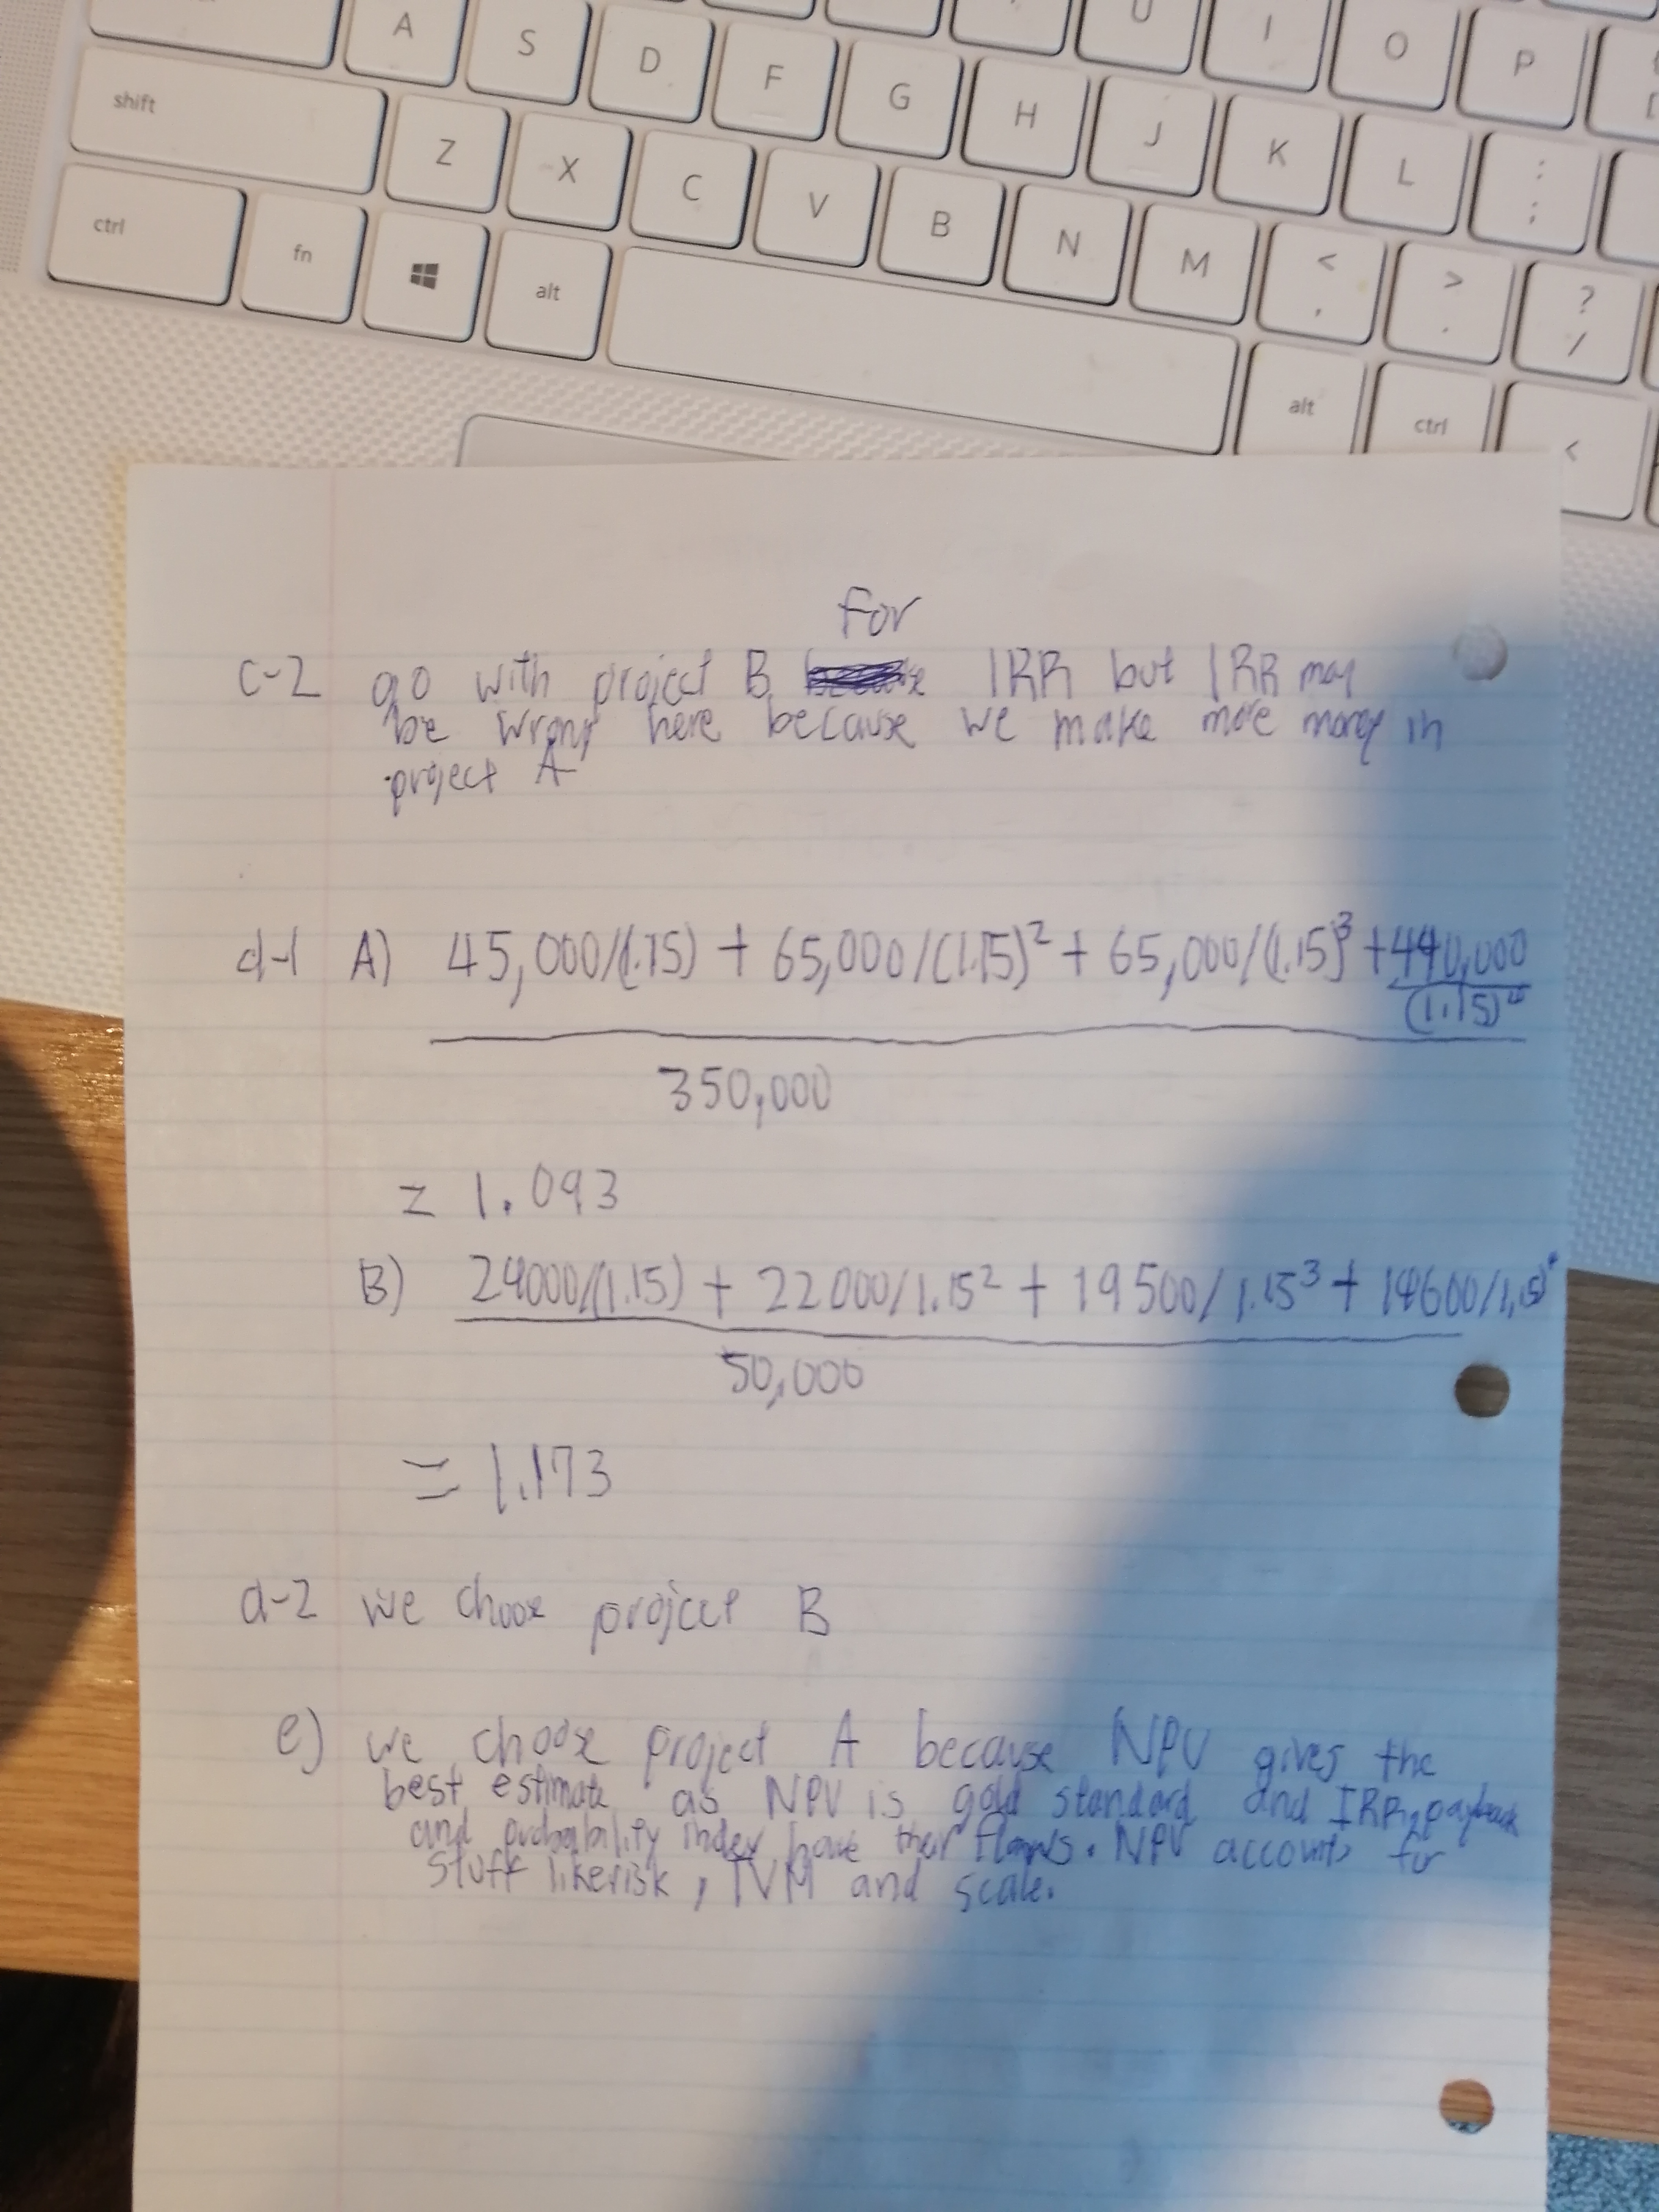 A S D F G H J K L ; :
U I O P
shift Z X C V B N M < , > . ? /
ctrl fn alt alt ctrl <
for
c-2 go with project B IRR but IRR may
be wrong here because we make more money in
project A
d-1 A) 45,000/(1.15) + 65,000/(1.15)² + 65,000/(1.15)³ + 440,000
(1.15)⁴
350,000
= 1.093
B) 24000/(1.15) + 22000/1.15² + 19500/1.15³ + 14600/1.15)⁴
50,000
= 1.173
d-2 we choose project B
e) we choose project A because NPV gives the
best estimate as NPV is gold standard and IRR, payback
and probability index have their flaws. NPV accounts for
stuff like risk, TVM and scale.